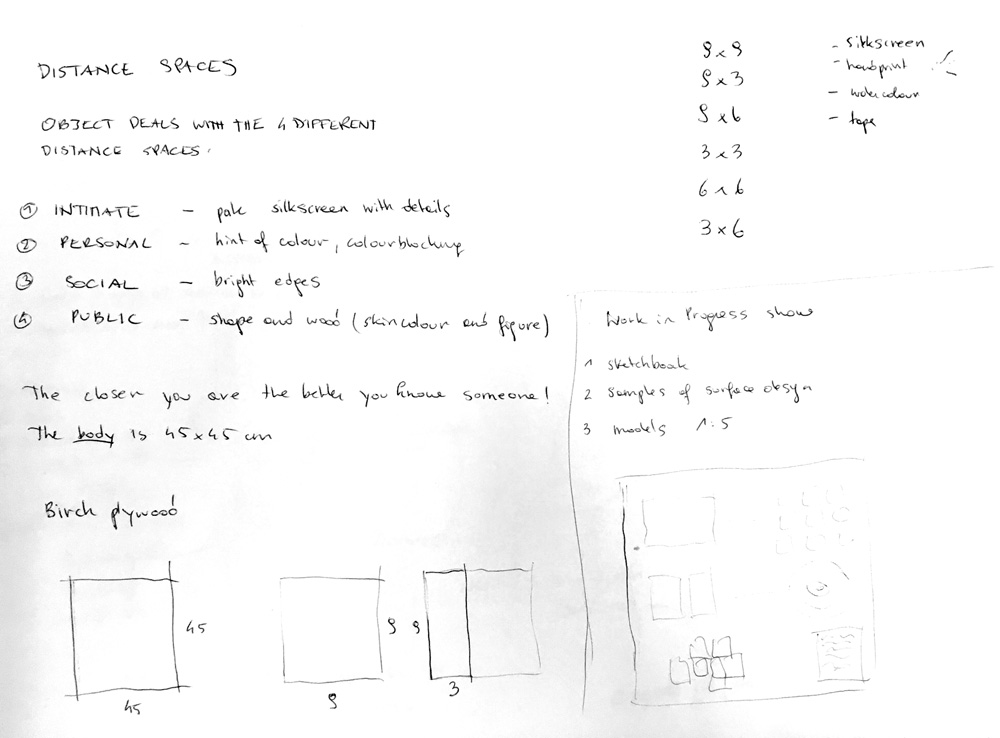 DISTANCE SPACES
OBJECT DEALS WITH THE 4 DIFFERENT
DISTANCE SPACES.
① INTIMATE – pale silkscreen with details
② PERSONAL – hint of colour, colourblocking
③ SOCIAL – bright edges
④ PUBLIC – shape and wood (skincolour and figure)
The closer you are the better you know someone!
The body is 45x45 cm
Birch plywood
45
45
9
9
9
3
9 x 9
9 x 3
9 x 6
3 x 3
6 x 6
3 x 6
- silkscreen
- handprint
- watercolour
- tape
Work in Progress show
1 sketchbook
2 samples of surface design
3 models 1:5